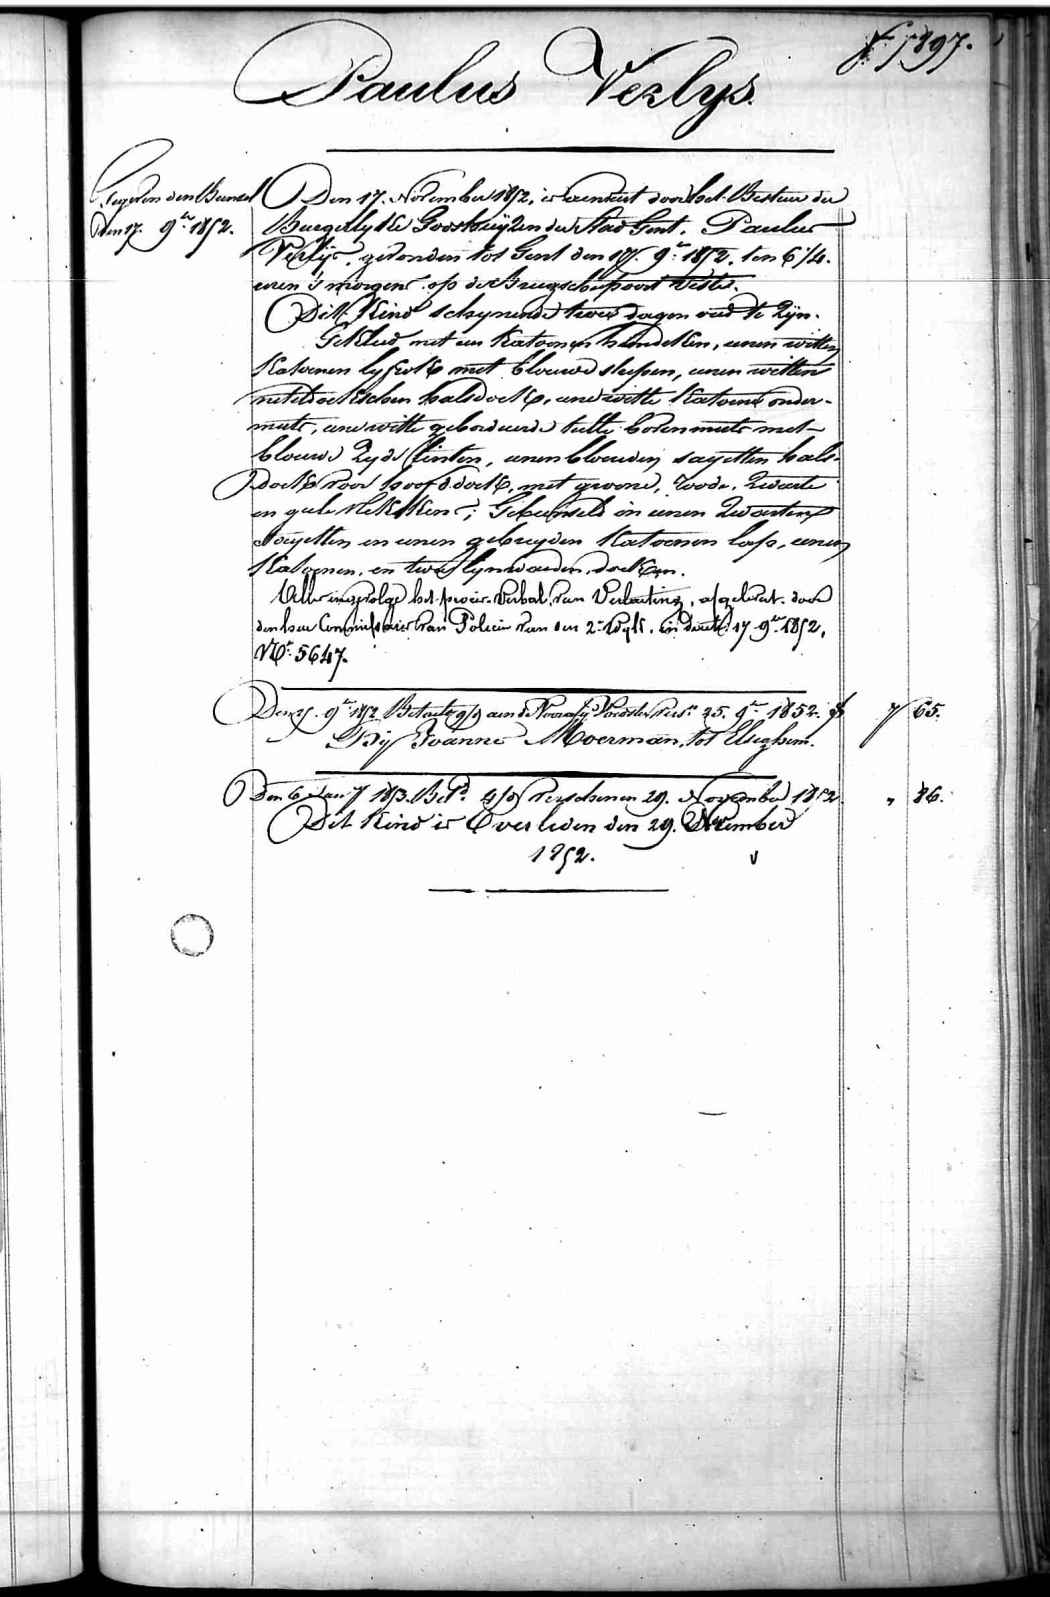 f° 1397.
Paulus Verlys.
Den 17. November 1852, is aenveert door het Bestuer der
Burgerlyke Godshuyzen der Stad Gent, Paulus
Verlijs, gevonden tot Gent den 17. 9.re 1852. ten 6 1/4.
uren 's morgens op de Brugschepoort Veste.
Dit Kind schynende twee dagen oud te Zyn.
Gekleed met een Katoenen hemdeken, eenen witten
Katoenen lyfrok met blouwe slepen, eenen witten
neteldoekschen halsdoek, eene witte Katoene onder-
muts, eene witte geborduerde tulle bovenmuts met
blouwe Zyde linten, eenen blouwen sayetten hals-
doek voor hoofddoek, met groene, roode, Zwarte
en gele vlekken; Gebunseld in eenen Zwarten
sayetten en eenen gebreyden Katoenen lap, eenen
Katoenen, en twee lynwaeden doeken.
Alles ingevolge het proces-Verbal van Verlaeting, afgelevert door
den heer Commissaris van Policie van den 2.e Wyk, in date 17 9.re 1852,
N.° 5647.
Gegeven den
den 17. 9.re 1852.
9.re 1852 Betaelt aen de Voorsz. Voedster 25. 9.re 1852. f 7 65.
By Joanne Moerman, tot Elseghem.
Den 6 Jan.y 1853. Bet.d verschenen 29. November 1852. " 86.
Dit Kind is Overleden den 29. November
1852.